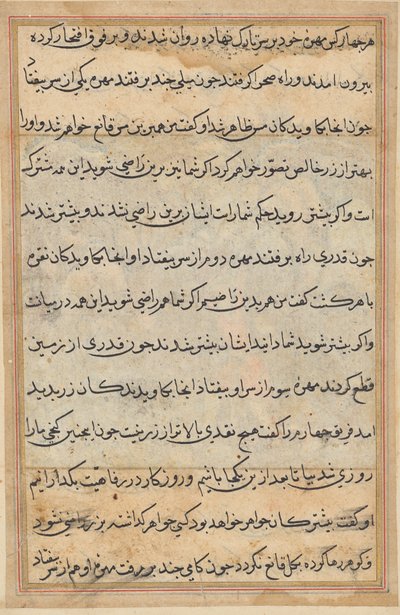 هر چهار کس مهره خود بر سر تارک نهاده روان شدند و بر فوق افتخار کرده
بیرون آمدند و راه صحرا گرفتند چون میلی چند برفتند مهره یکی از سر بیفتاد
چون آنجا بکاویدند کان مس ظاهر شد او گفت من همبرین مس قانع خواهم شد و اورا
بهتر از زر خالص تصور خواهم کرد اگر شما نیز برین راضی شوید این همه مشترک
است و اگر بیشتر روید حکم شما راست ایشان برین راضی نشدند و بیشتر شدند
چون قدری راه برفتند مهره دوم از سر بیفتاد او آنجا بکاوید کان نقره
باهر گشت گفت من هم بدین راضیم اگر شما هم راضی شوید این همه درمیانت
و اگر بیشتر شوید شما دانید ایشان بیشتر شدند چون قدری از زمین
قطع کردند مهره سوم از سر او بیفتاد آنجا بکاویدند کان زر بدید
آمد فریق چهارم را گفت هیچ نقدی بالاتر از زر نیست چون اینچنین گنجی مارا
روزی شد بیا تا بعد ازین یکجا باشیم و روزگار در رفاهیت بگذرانیم
او گفت بیشتر کان جواهر خواهد بود کسی جواهر گذاشته بر زر راضی نشود
و گوهر رها کرده بکل قانع نگردد چون گامی چند برفت مهره او هم از سر بیفتاد